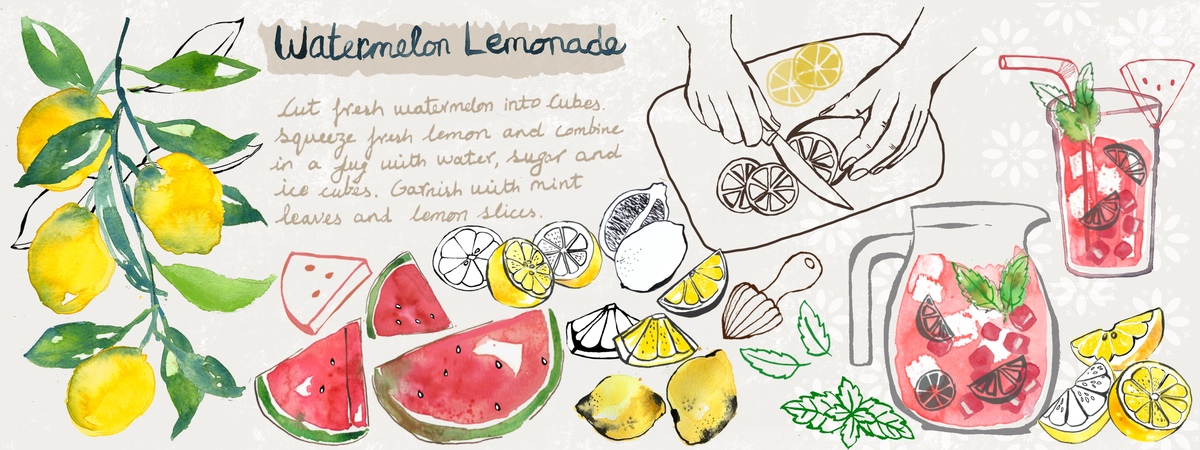 Watermelon Lemonade
Cut fresh watermelon into Cubes.
Squeeze fresh lemon and combine
in a Jug with water, sugar and
ice cubes. Garnish with mint
leaves and lemon slices.